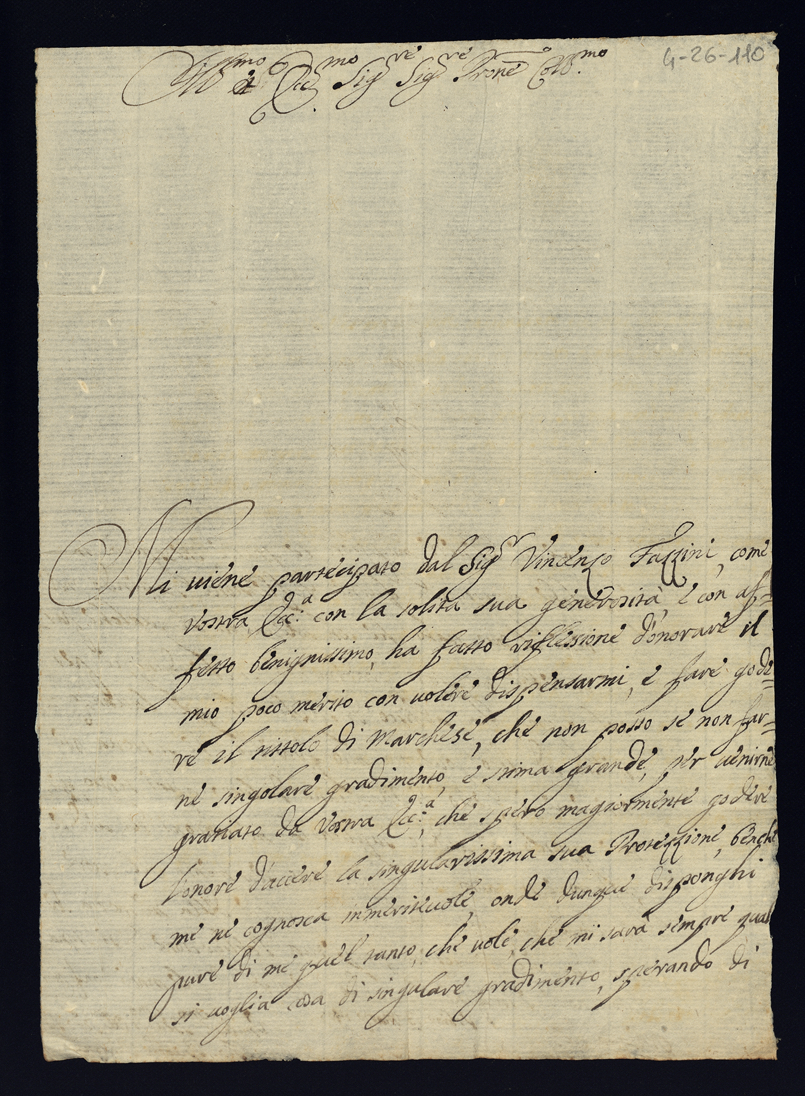 Ill.mo et Ecc.mo Sig.re Sig.re Prone Coll.mo
4-26-110
Mi uiene partecipato dal Sig.r Vincenzo Fazzini, come
Vostra Ecc.a con la solita sua generosità, e con af=
fetto benignissimo, ha fatto riflessione d'onorare il
mio poco merito con uolere dispensarmi, e fare gode=
re il tittolo di Marchese, che non posso se non far=
ne singolare gradimento, e stima grande, per uenirne
gratiato da Vostra Ecc.a, che spero magiormente godere
l'onore d'auere la singularissima sua Protezzione, benche
me ne cognosca inmeriteuole, onde dunque disponghi
pure di me quel tanto, che uole, che mi sarà sempre qual
si uoglia cosa di singulare gradimento, sperando di